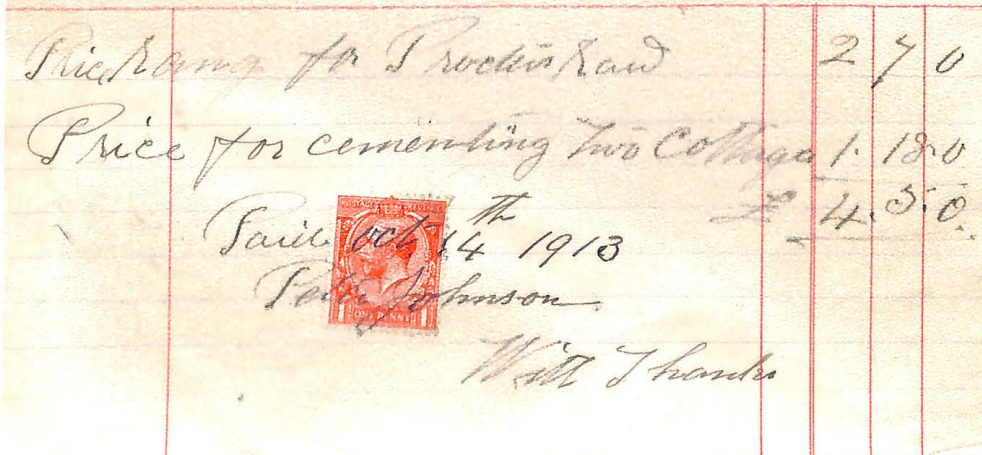 Price for Procters 2 7 0
Price for cementing Two Cottages 1. 18.0
£ 4. 5. 0.
Paid Oct 14th 1913
Peter Johnson
With Thanks
POSTAGE REVENUE
1 ONE PENNY 1